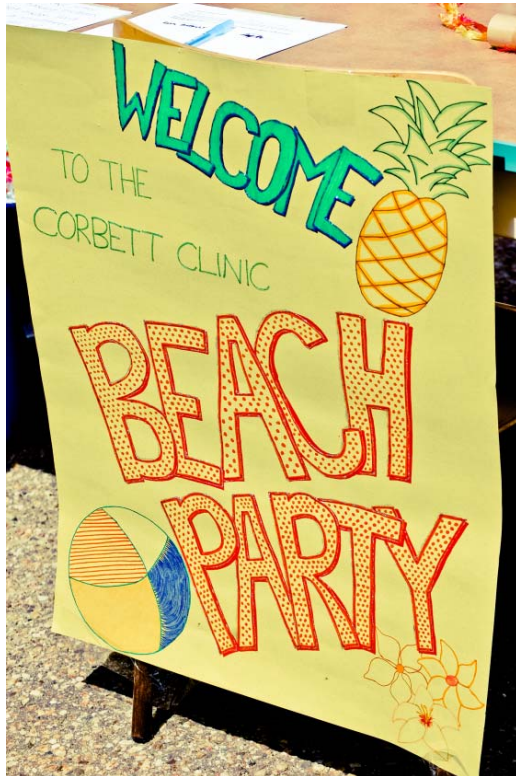 WELCOME
TO THE
CORBETT CLINIC
BEACH
PARTY